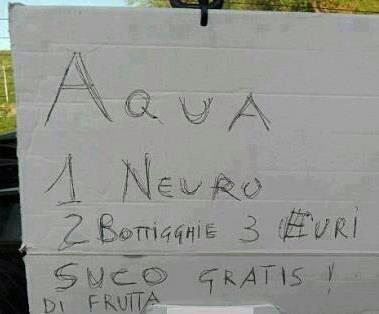 AQUA
1 NEURO
2 BOTTIGGHIE 3 EURI
SUCO GRATIS!
DI FRUTTA